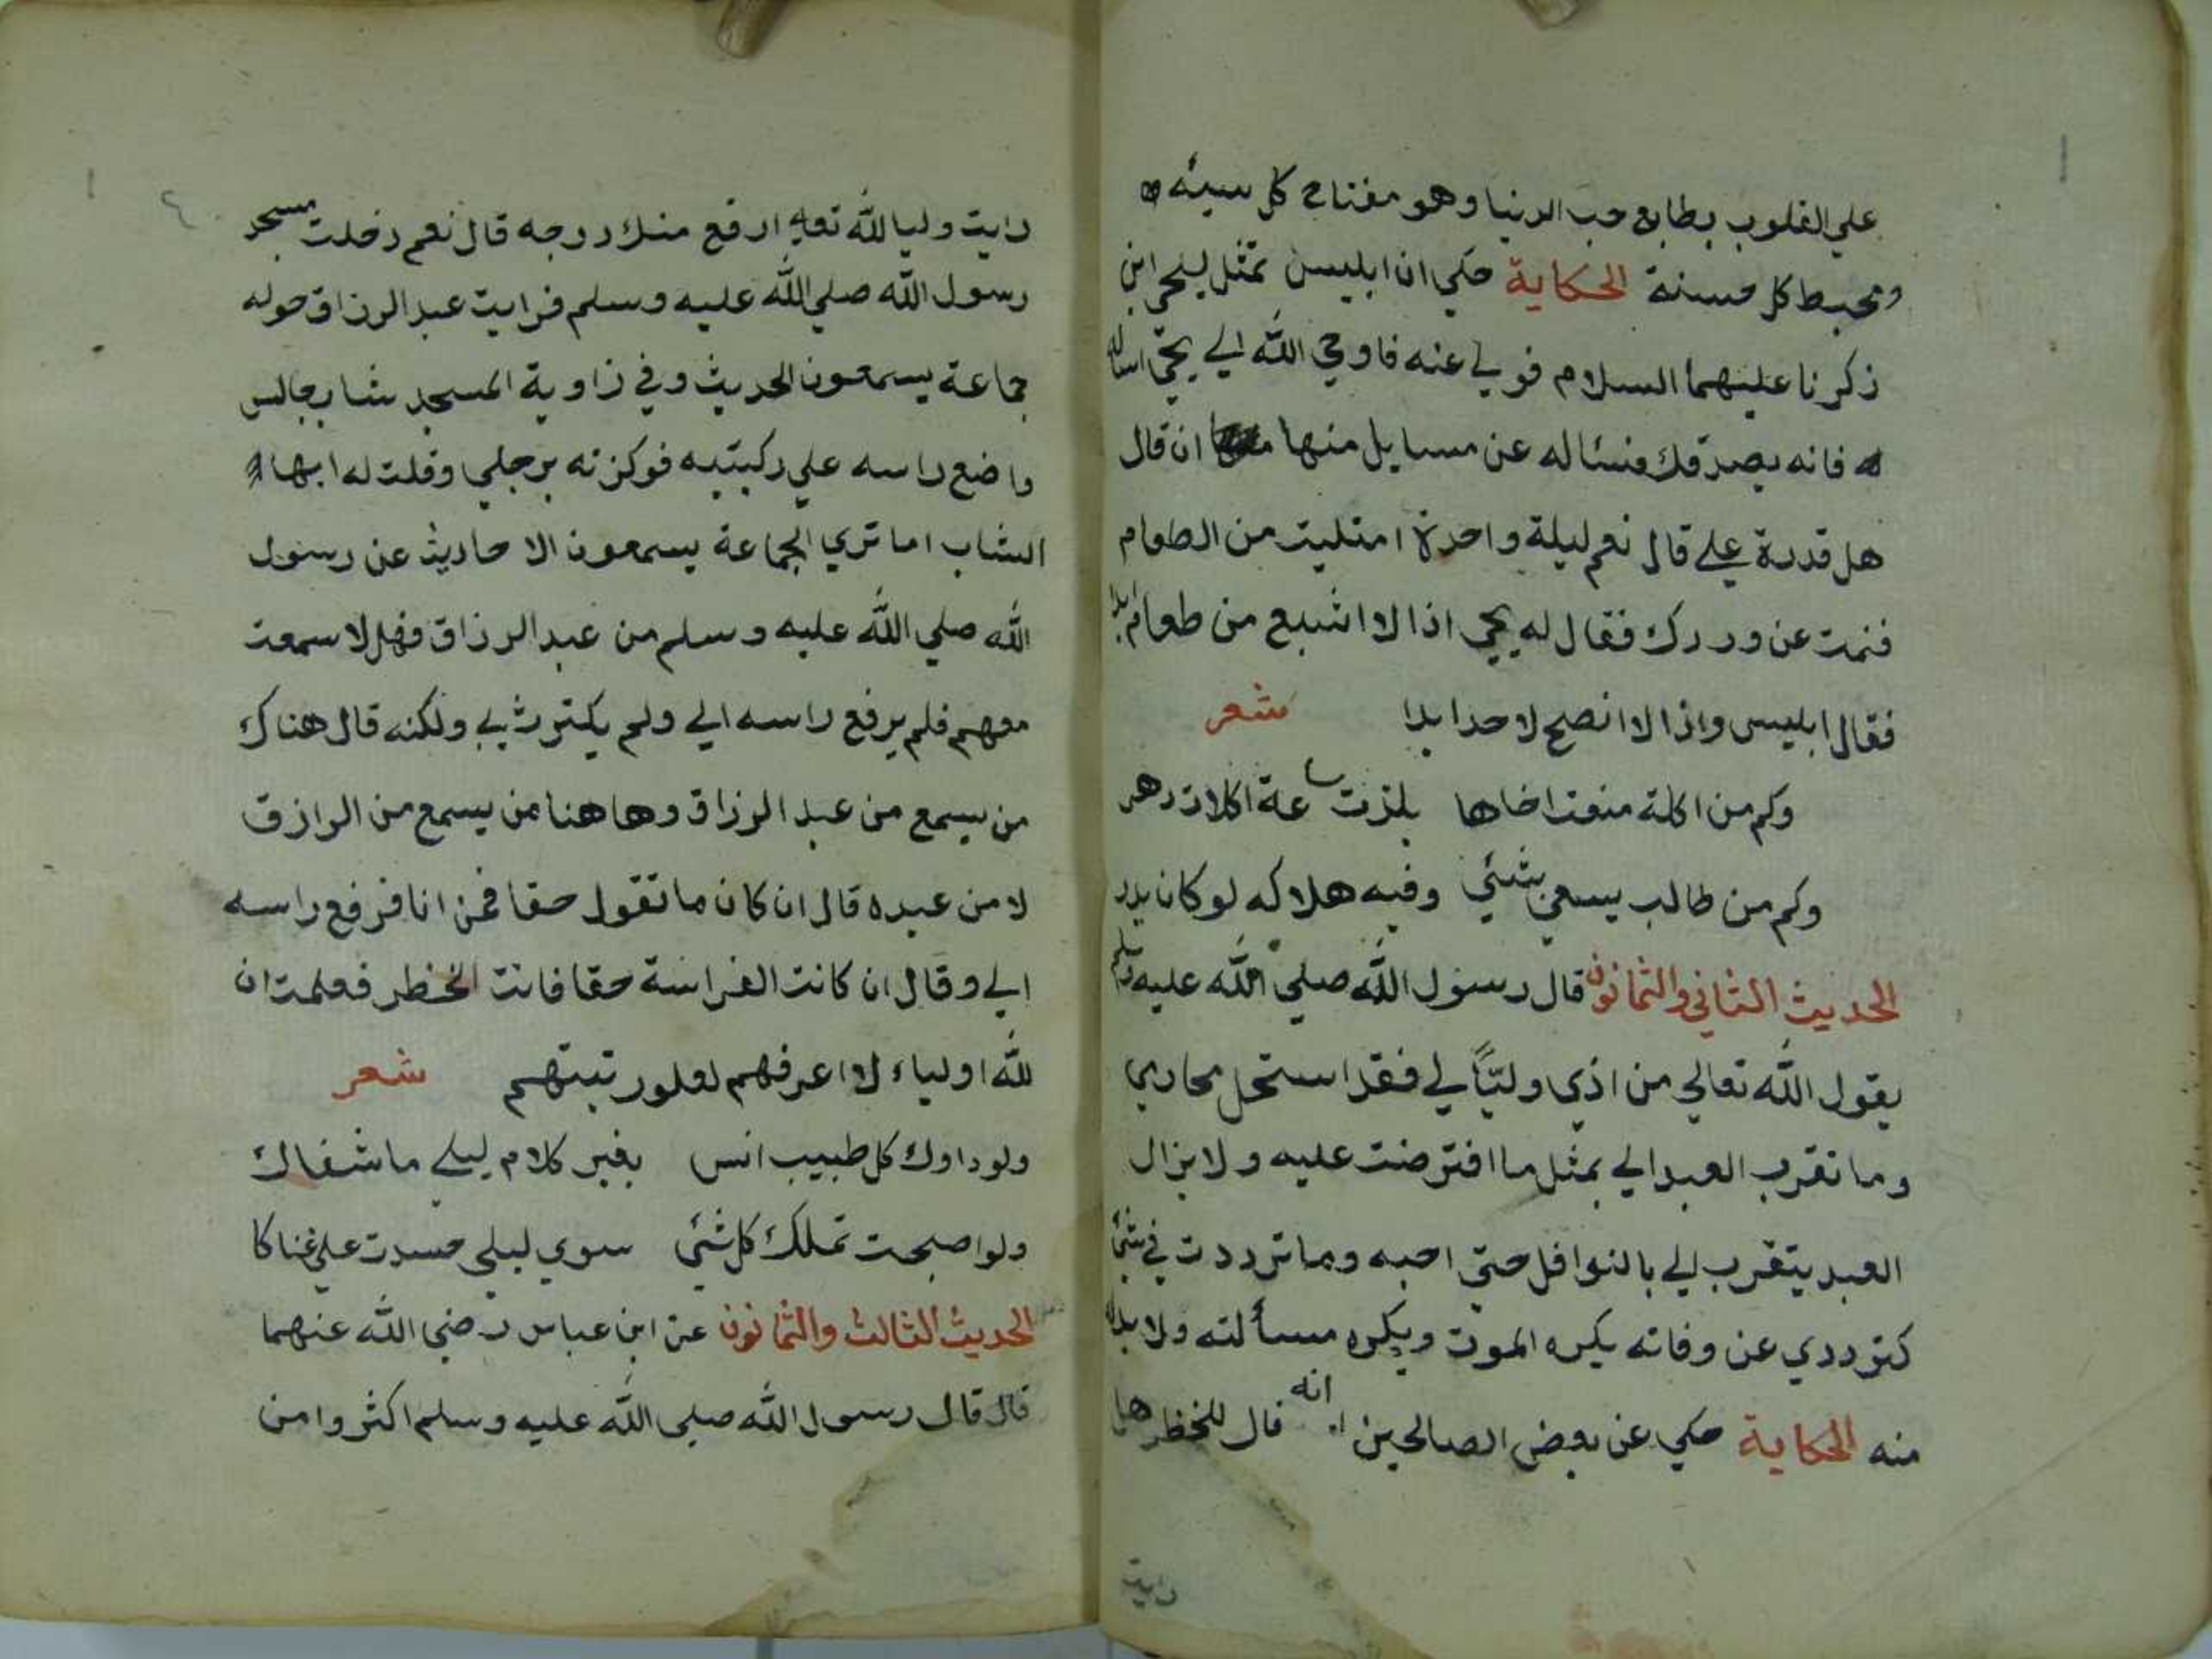 علي القلوب بطابع حب الدنيا وهو مفتاح كل سيئه
ومحبط كل حسنة الحكاية حكي ان ابليس تمثل ليحي ابن
زكرنا عليهما السلام فولي عنه فاوحي الله الي يحيي اساله
فانه يصدقك فسئاله عن مسايل منها ان قال
هل قدرة علي قال نعم ليلة واحدة امتليت من الطعام
فنمت عن وردك فقال له يحيي اذا لا اشبع من طعام ابدا
فقال ابليس واذا لا انصح لاحد ابدا شعر
وكم من اكلة منعت اخاها بلذت ساعة اكلات دهر
وكم من طالب يسعي بشئي وفيه هلاكه لو كان يدر
الحديث الثاني والثمانون قال رسول الله صلي الله عليه وسلم
يقول الله تعالي من اذي وليًّا لي فقد استحل محاربي
وما تقرب العبد الي بمثل ما افترضت عليه ولا يزال
العبد يتقرب الي بالنوافل حتي احبه وما ترددت في شئ
كترددي عن وفاته يكره الموت ويكره مسألته ولا بد له
منه الحكاية حكي عن بعض الصالحين انه قال للخظر هل
رايت
رايت وليا لله تعالي ارفع منك درجه قال نعم دخلت مسجد
رسول الله صلي الله عليه وسلم فرايت عبد الرزاق حوله
جماعة يسمعون الحديث وفي زاوية المسجد شاب جالس
واضع راسه علي ركبتيه فوكزته برجلي وقلت له ايها
الشاب اما تري الجماعة يسمعون الاحاديث عن رسول
الله صلي الله عليه وسلم من عبد الرزاق فهل لا سمعت
معهم فلم يرفع راسه الي ولم يكترث بي ولكنه قال هناك
من يسمع من عبد الرزاق وهاهنا من يسمع من الرازق
لا من عبده قال ان كان ما تقول حقا فمن انا فرفع راسه
الي وقال ان كانت الفراسة حقا فانت الخظر فعلمت ان
لله اولياء لا اعرفهم لعلور تبتهم شعر
ولو داوك كل طبيب انس بغير كلام ليلي ما شفاك
ولو اصبحت تملك كل شئي سوي ليلي حسدت علي غناكا
الحديث الثالث والثمانون عن ابن عباس رضي الله عنهما
قال قال رسول الله صلي الله عليه وسلم اكثروا من